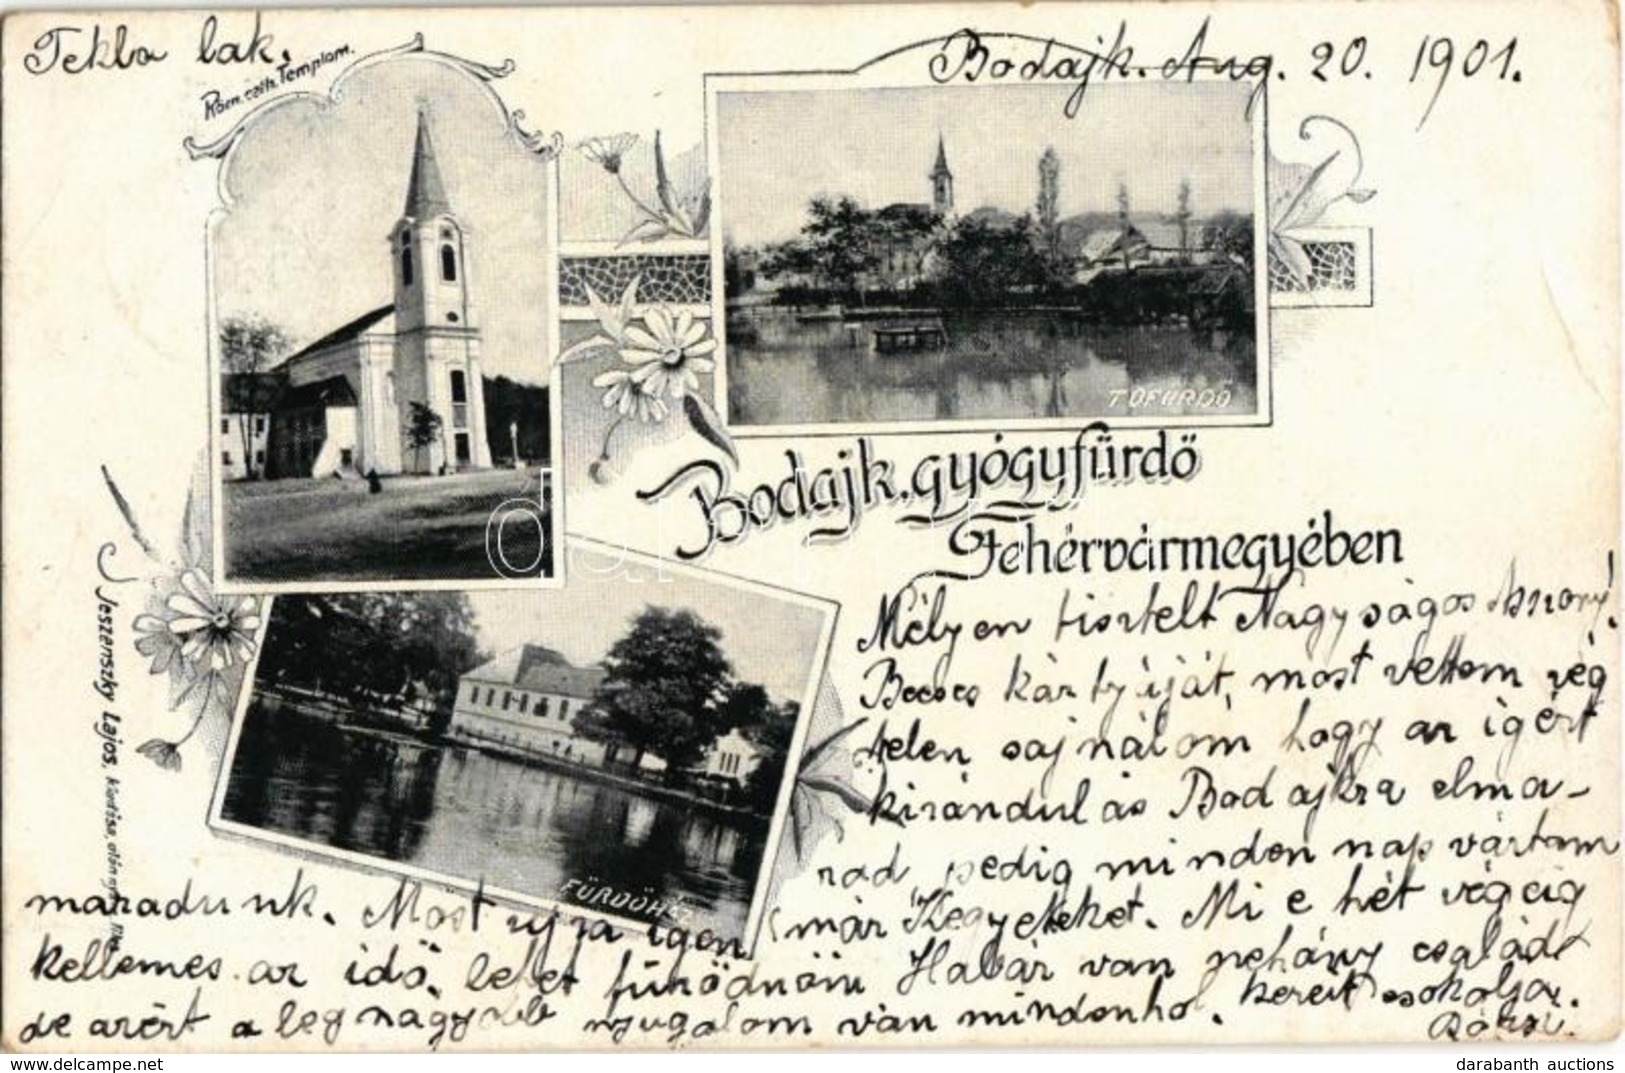 Tekla lak.
Bodajk. Aug. 20. 1901.
Róm. cath. Templom.
TÓFÜRDŐ
Bodajk, gyógyfürdő
Fehérvármegyében
FÜRDŐHÁZ
Jeszenszky Lajos, kiadása, után
Mélyen tisztelt Nagyságos Asszony!
Becses kártyáját, most vettem vég
telen sajnálom hogy az igért
kirándulás Bodajkra elma-
rad pedig minden nap vártam
már Kegyeteket. Mi e hét végéig
maradunk. Most ujra igen
kellemes az idő, lehet fürödnöm Habár van nehány család
de azért a legnagyobb nyugalom van mindenhol. kezeit csokolja.